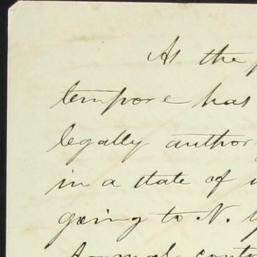 As the
tempore has
legally author
in a state of
going to N.